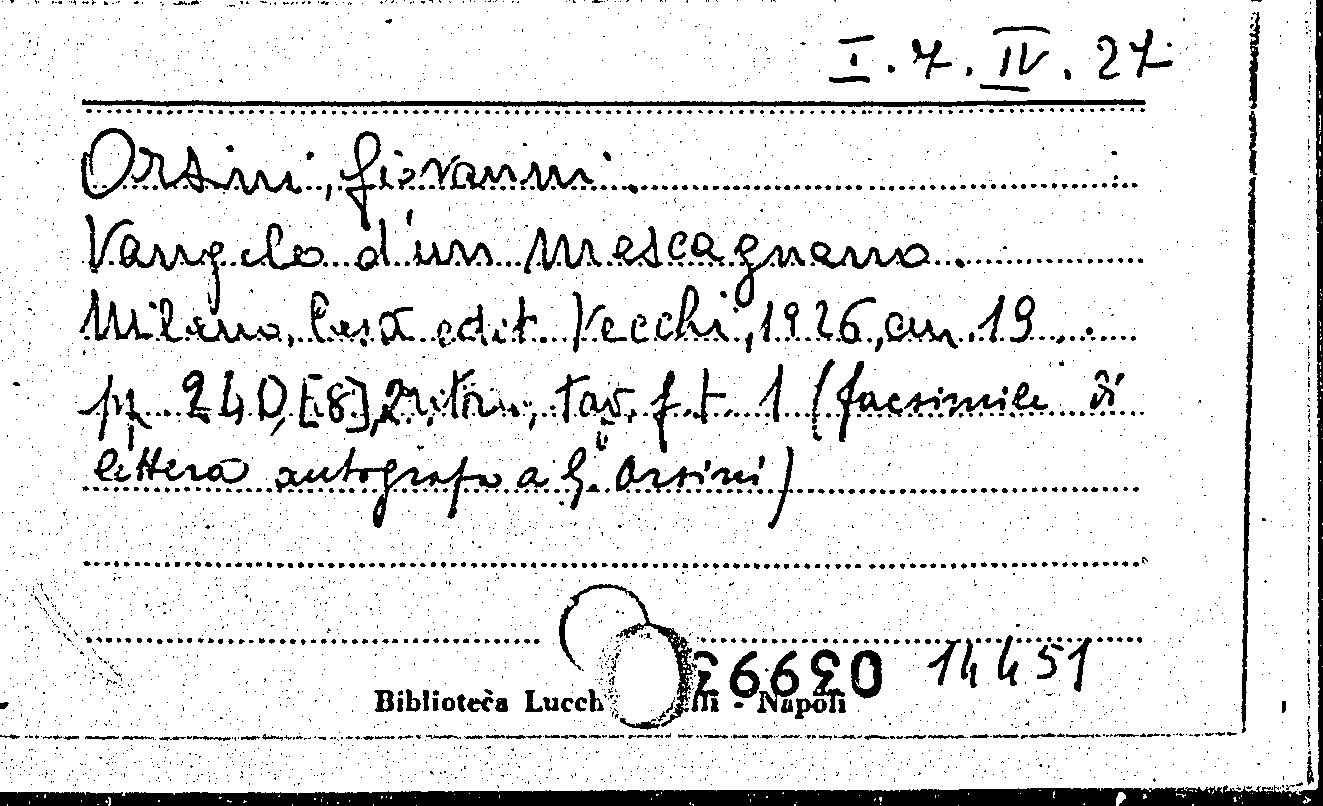 I. 7. IV. 27
Orsini, Giovanni.
Vangelo d'un mescagnano.
Milano, Casa edit. Vecchi, 1926, cm. 19
pp. 240, [8], tav. f. t. 1 (facsimile di
lettera autografa a G. Orsini)
14451
Biblioteca - Napoli